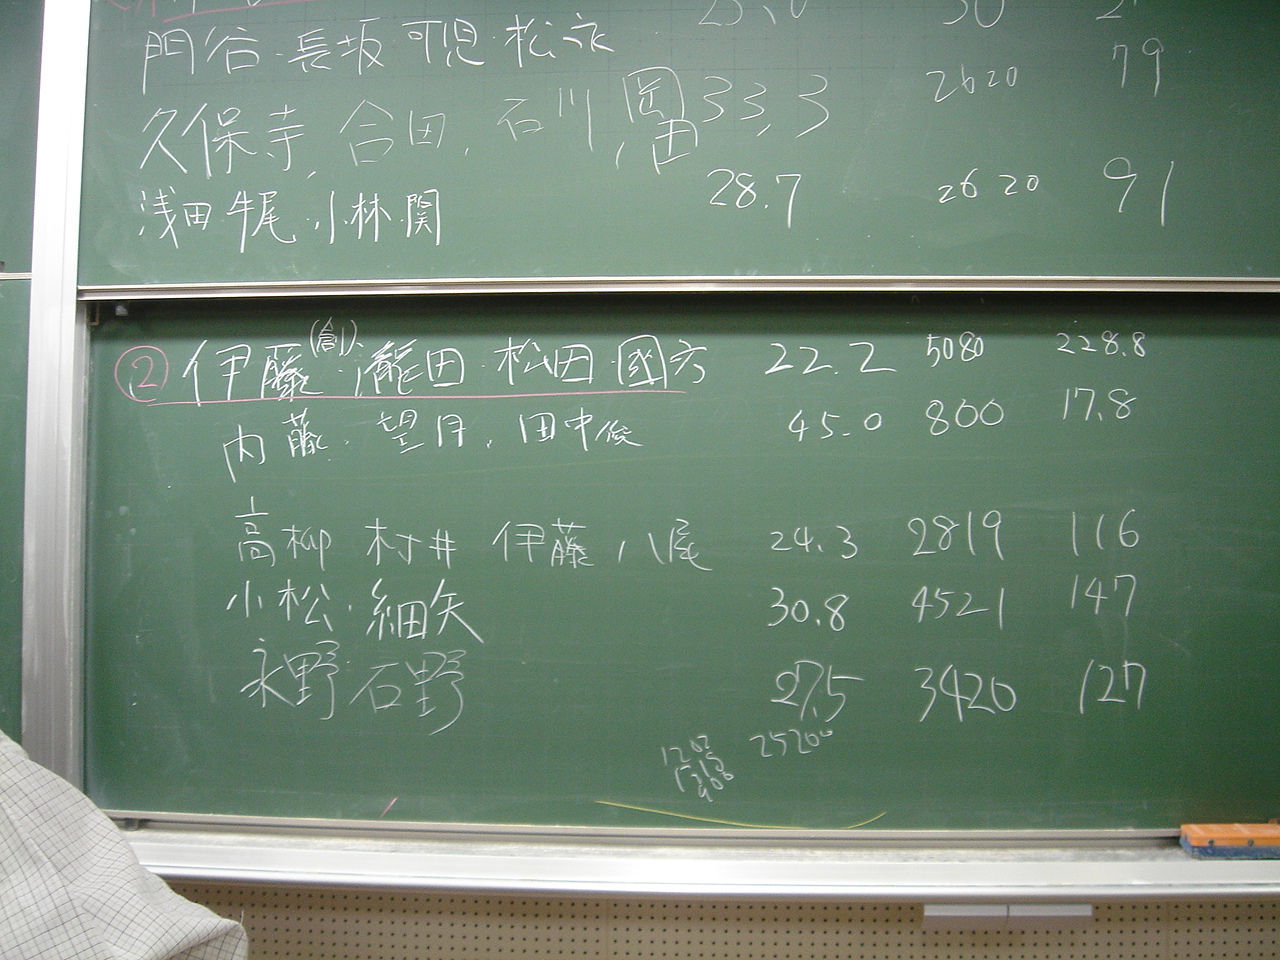 門谷・長坂 可児・松永 79
久保寺, 合田, 石川, 岡田 33.3 2620
浅田・牛尾・小林・関 28.7 2620 91
② 伊藤(創)・瀧田・松田・國六 22.2 5080 228.8
内藤・望月, 田中俊 45.0 800 17.8
高柳 村井 伊藤 八尾 24.3 2819 116
小松・細矢 30.8 4521 147
永野・石野 27.5 3420 127
25200